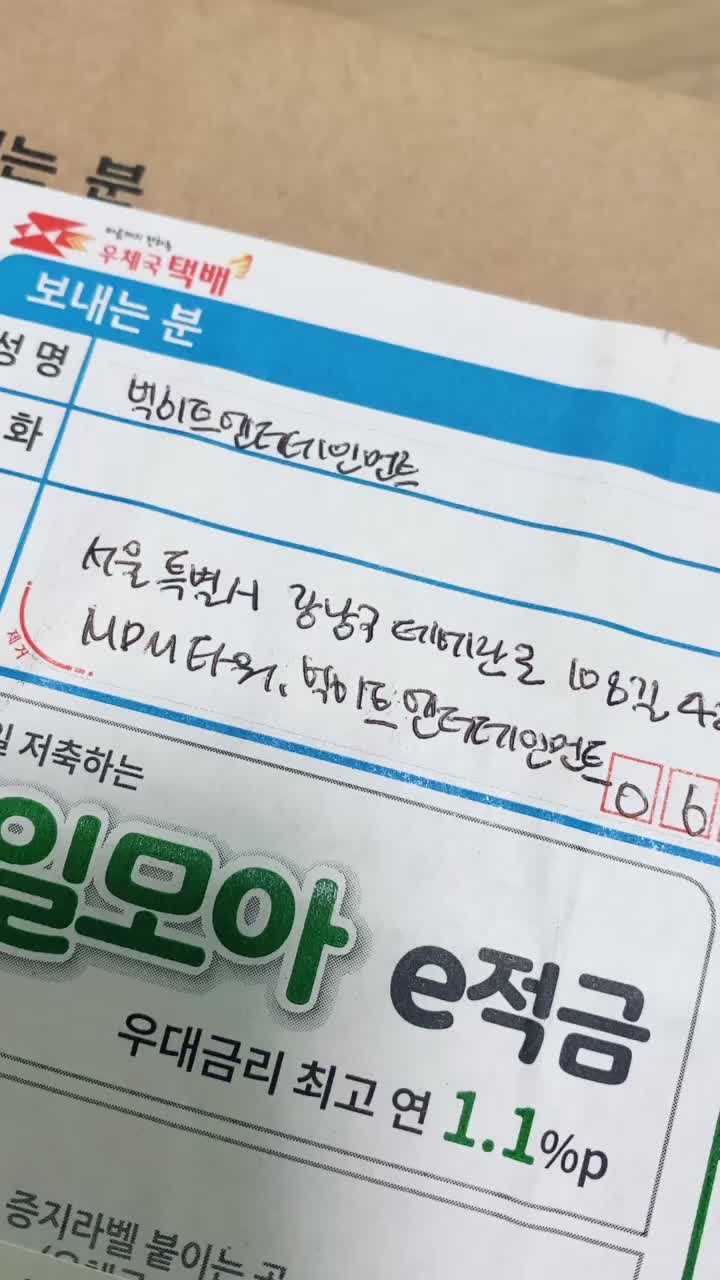 는 분
우체국 택배
보내는 분
성명
빅히트엔터테인먼트
화
서울특별시 강남구 테헤란로 108길 42
MDM타워, 빅히트엔터테인먼트
0 6
일 저축하는
일모아 e적금
우대금리 최고 연 1.1%p
증지라벨 붙이는 곳